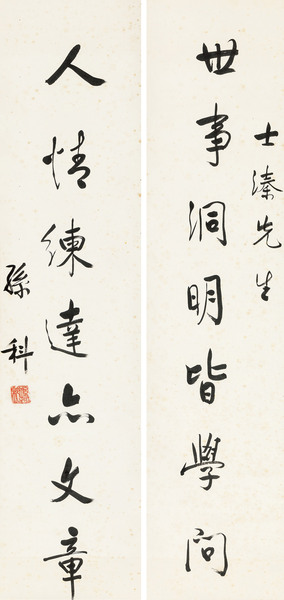 士溱先生
世事洞明皆學問
人情練達亦文章
孫科